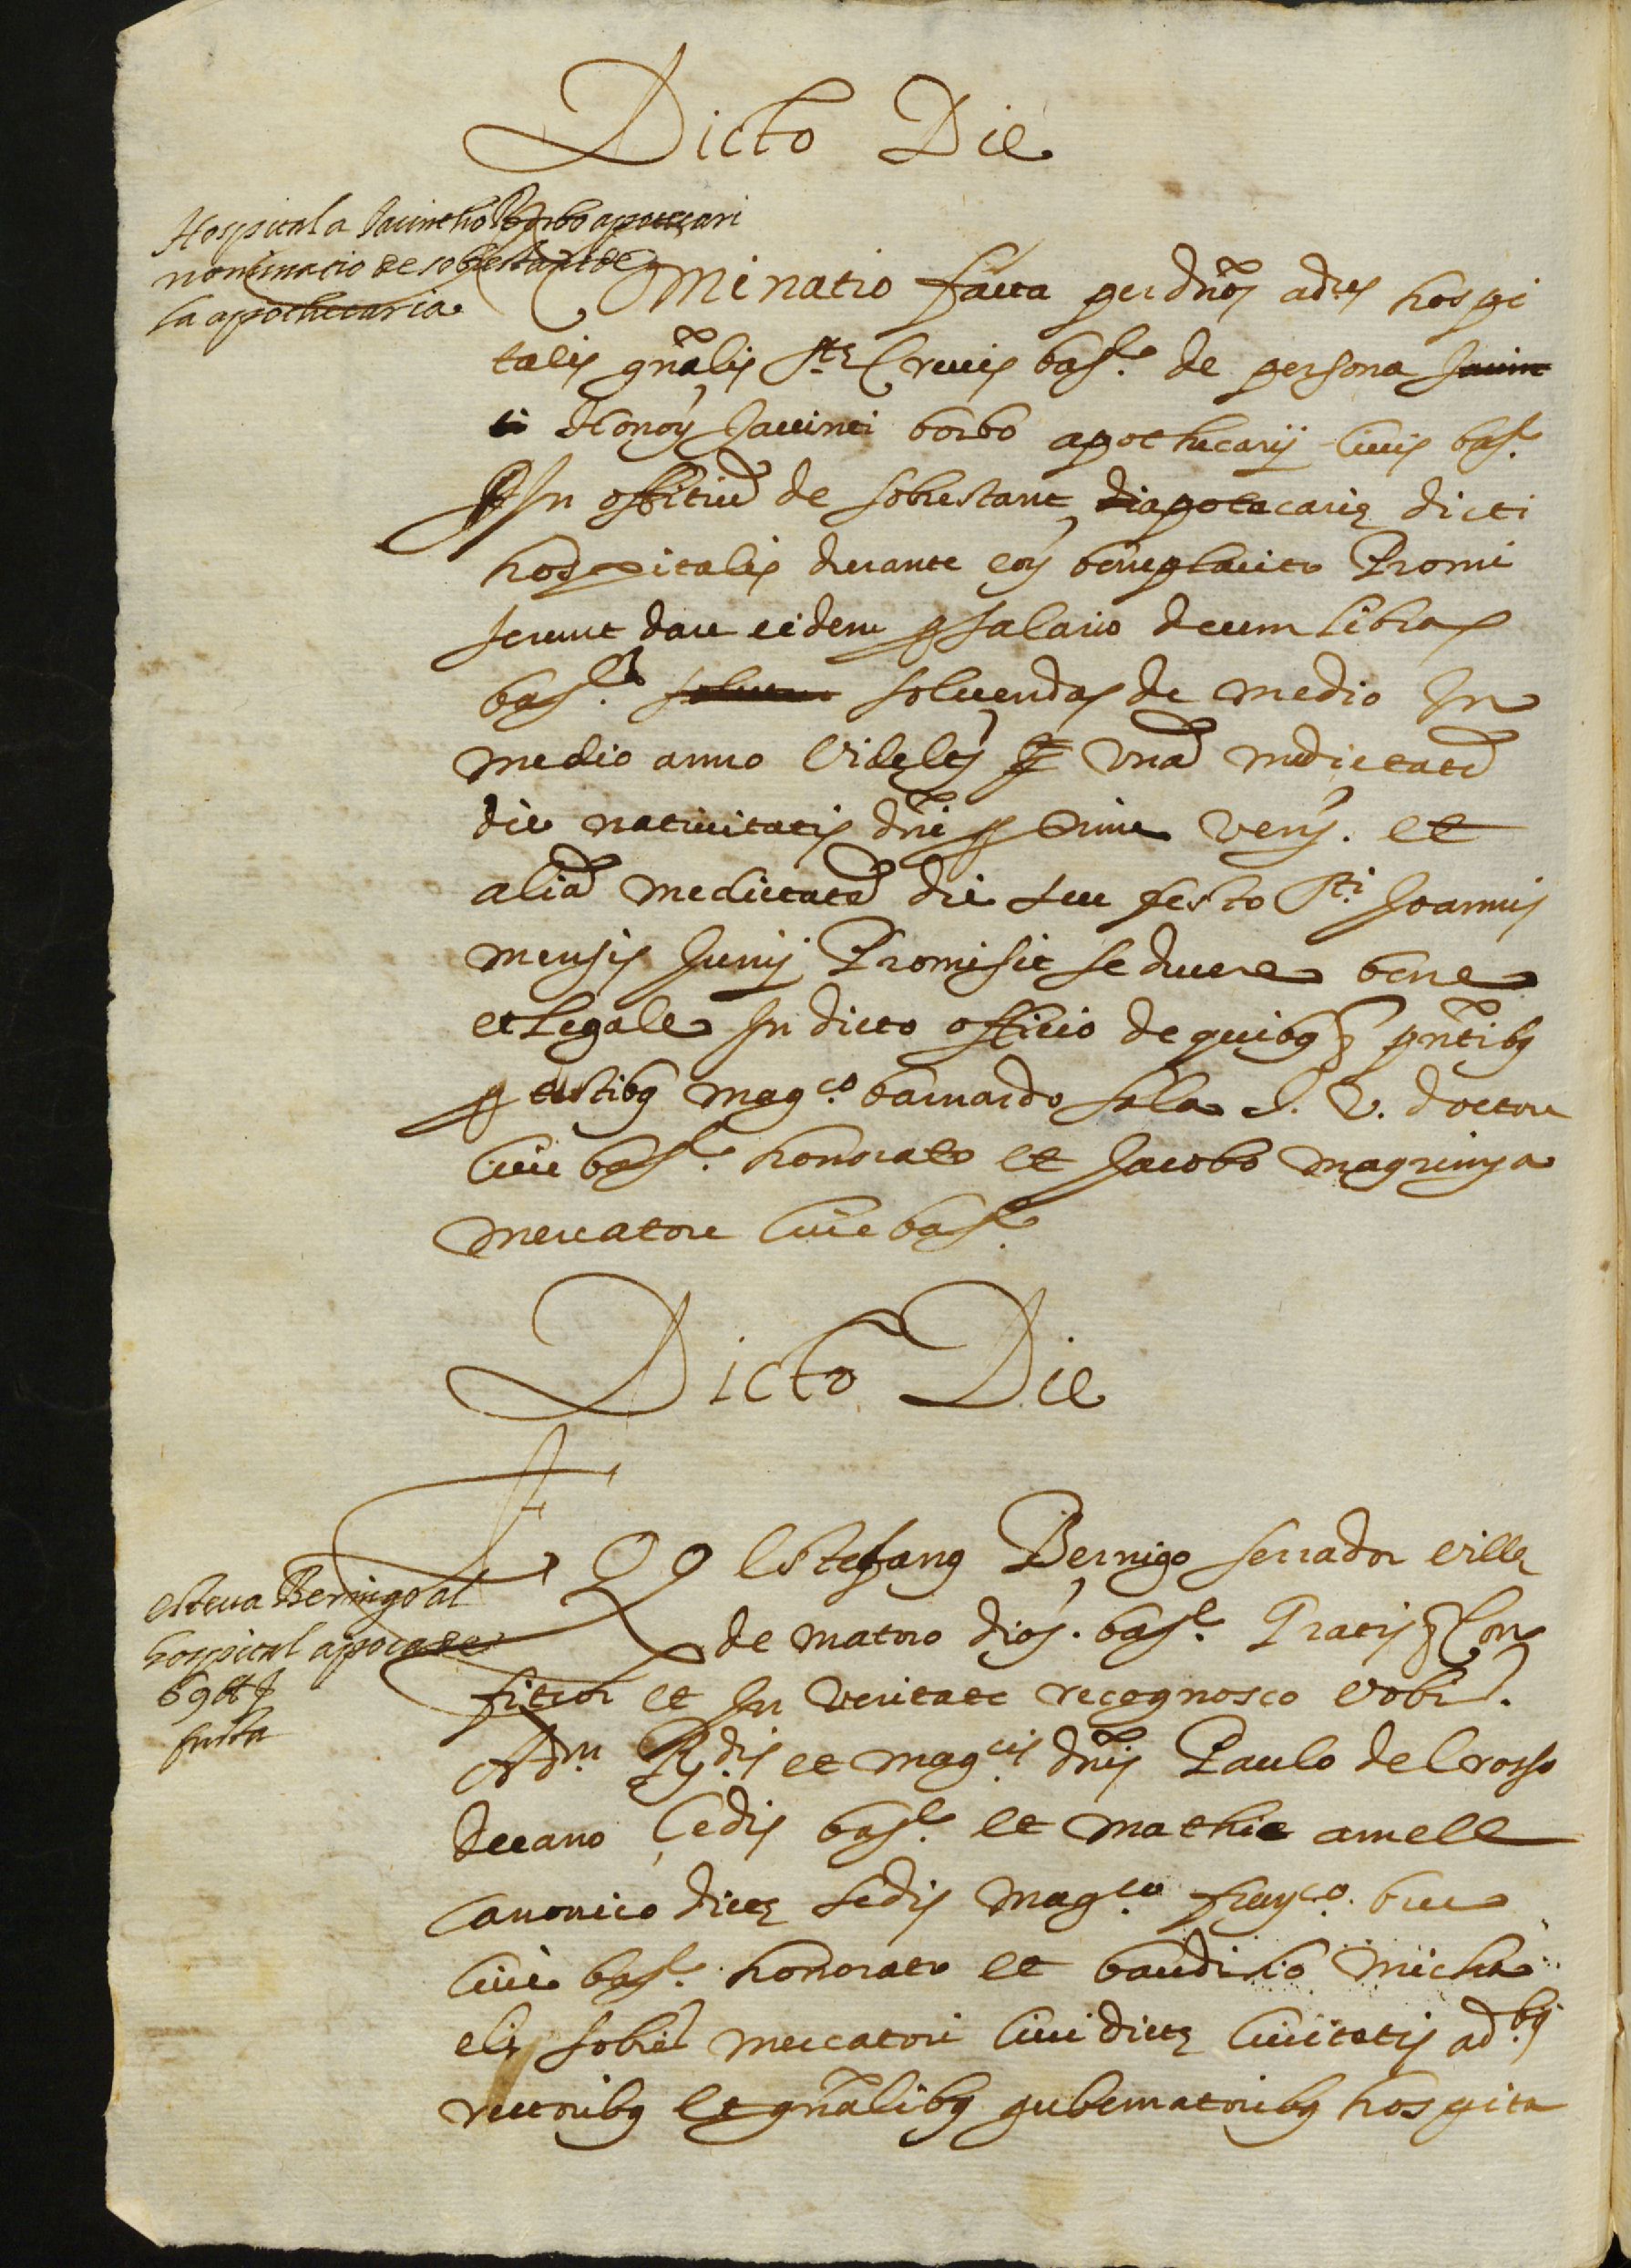 Dicto Die
Hospital a Jacintho Borbo apotecari
nominacio de sobrestant de
la apothecaria
Nominatio facta per dños adres hospi
talis gñalis Ste Crucis barᵉ de persona Jacin
ti Honor Jacinti borbo apothecarij Civis barᵉ
In offitiu de sobrestant apotecarie dicti
hospitalis durante eor beneplacito Promi
serunt dare eidem p salario decem libras
barᵉ soluendas de medio In
medio anno Videlt vna medietate
die natiuitatis dñi p xime vent. et
alia medietate die seu festo Sti Joannis
mensis Junij Promisit se ducere bene
et Legale In dicto officio de quibq pñtibq
p testibq magco barnardo Sala J. V. doctore
Ciue barᵉ honorato et Jacobo magrinya
mercatore Ciue barᵉ
Dicto Die
Esteua Bernigo al
hospital apoca de
69 ll
fusta
Ego Estefanq Bernigo serrador ville
de mataro dios. barᵉ Gratis Con
fiteor et In veritate recognosco vobis
Adm Rdis et magcis dñis Paulo del rosso
decano Cedis barᵉ et mathie amell
Canonico dicte sedis magco franco bru
Ciui barᵉ honorato et baudilio micha
elis sobies mercatori Ciui dicte Ciuitatis adbq
rectoribq et gñalibq gubernatoribq hospita